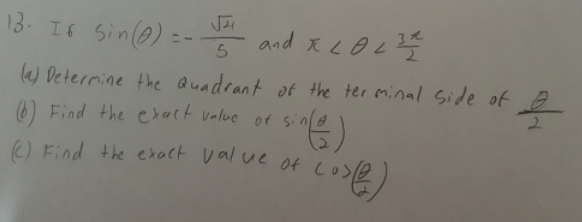 13. If sin(θ) = - √21/5 and π < θ < 3π/2
(a) Determine the Quadrant of the terminal side of θ/2
(b) Find the exact value of sin(θ/2)
(c) Find the exact value of cos(θ/2)